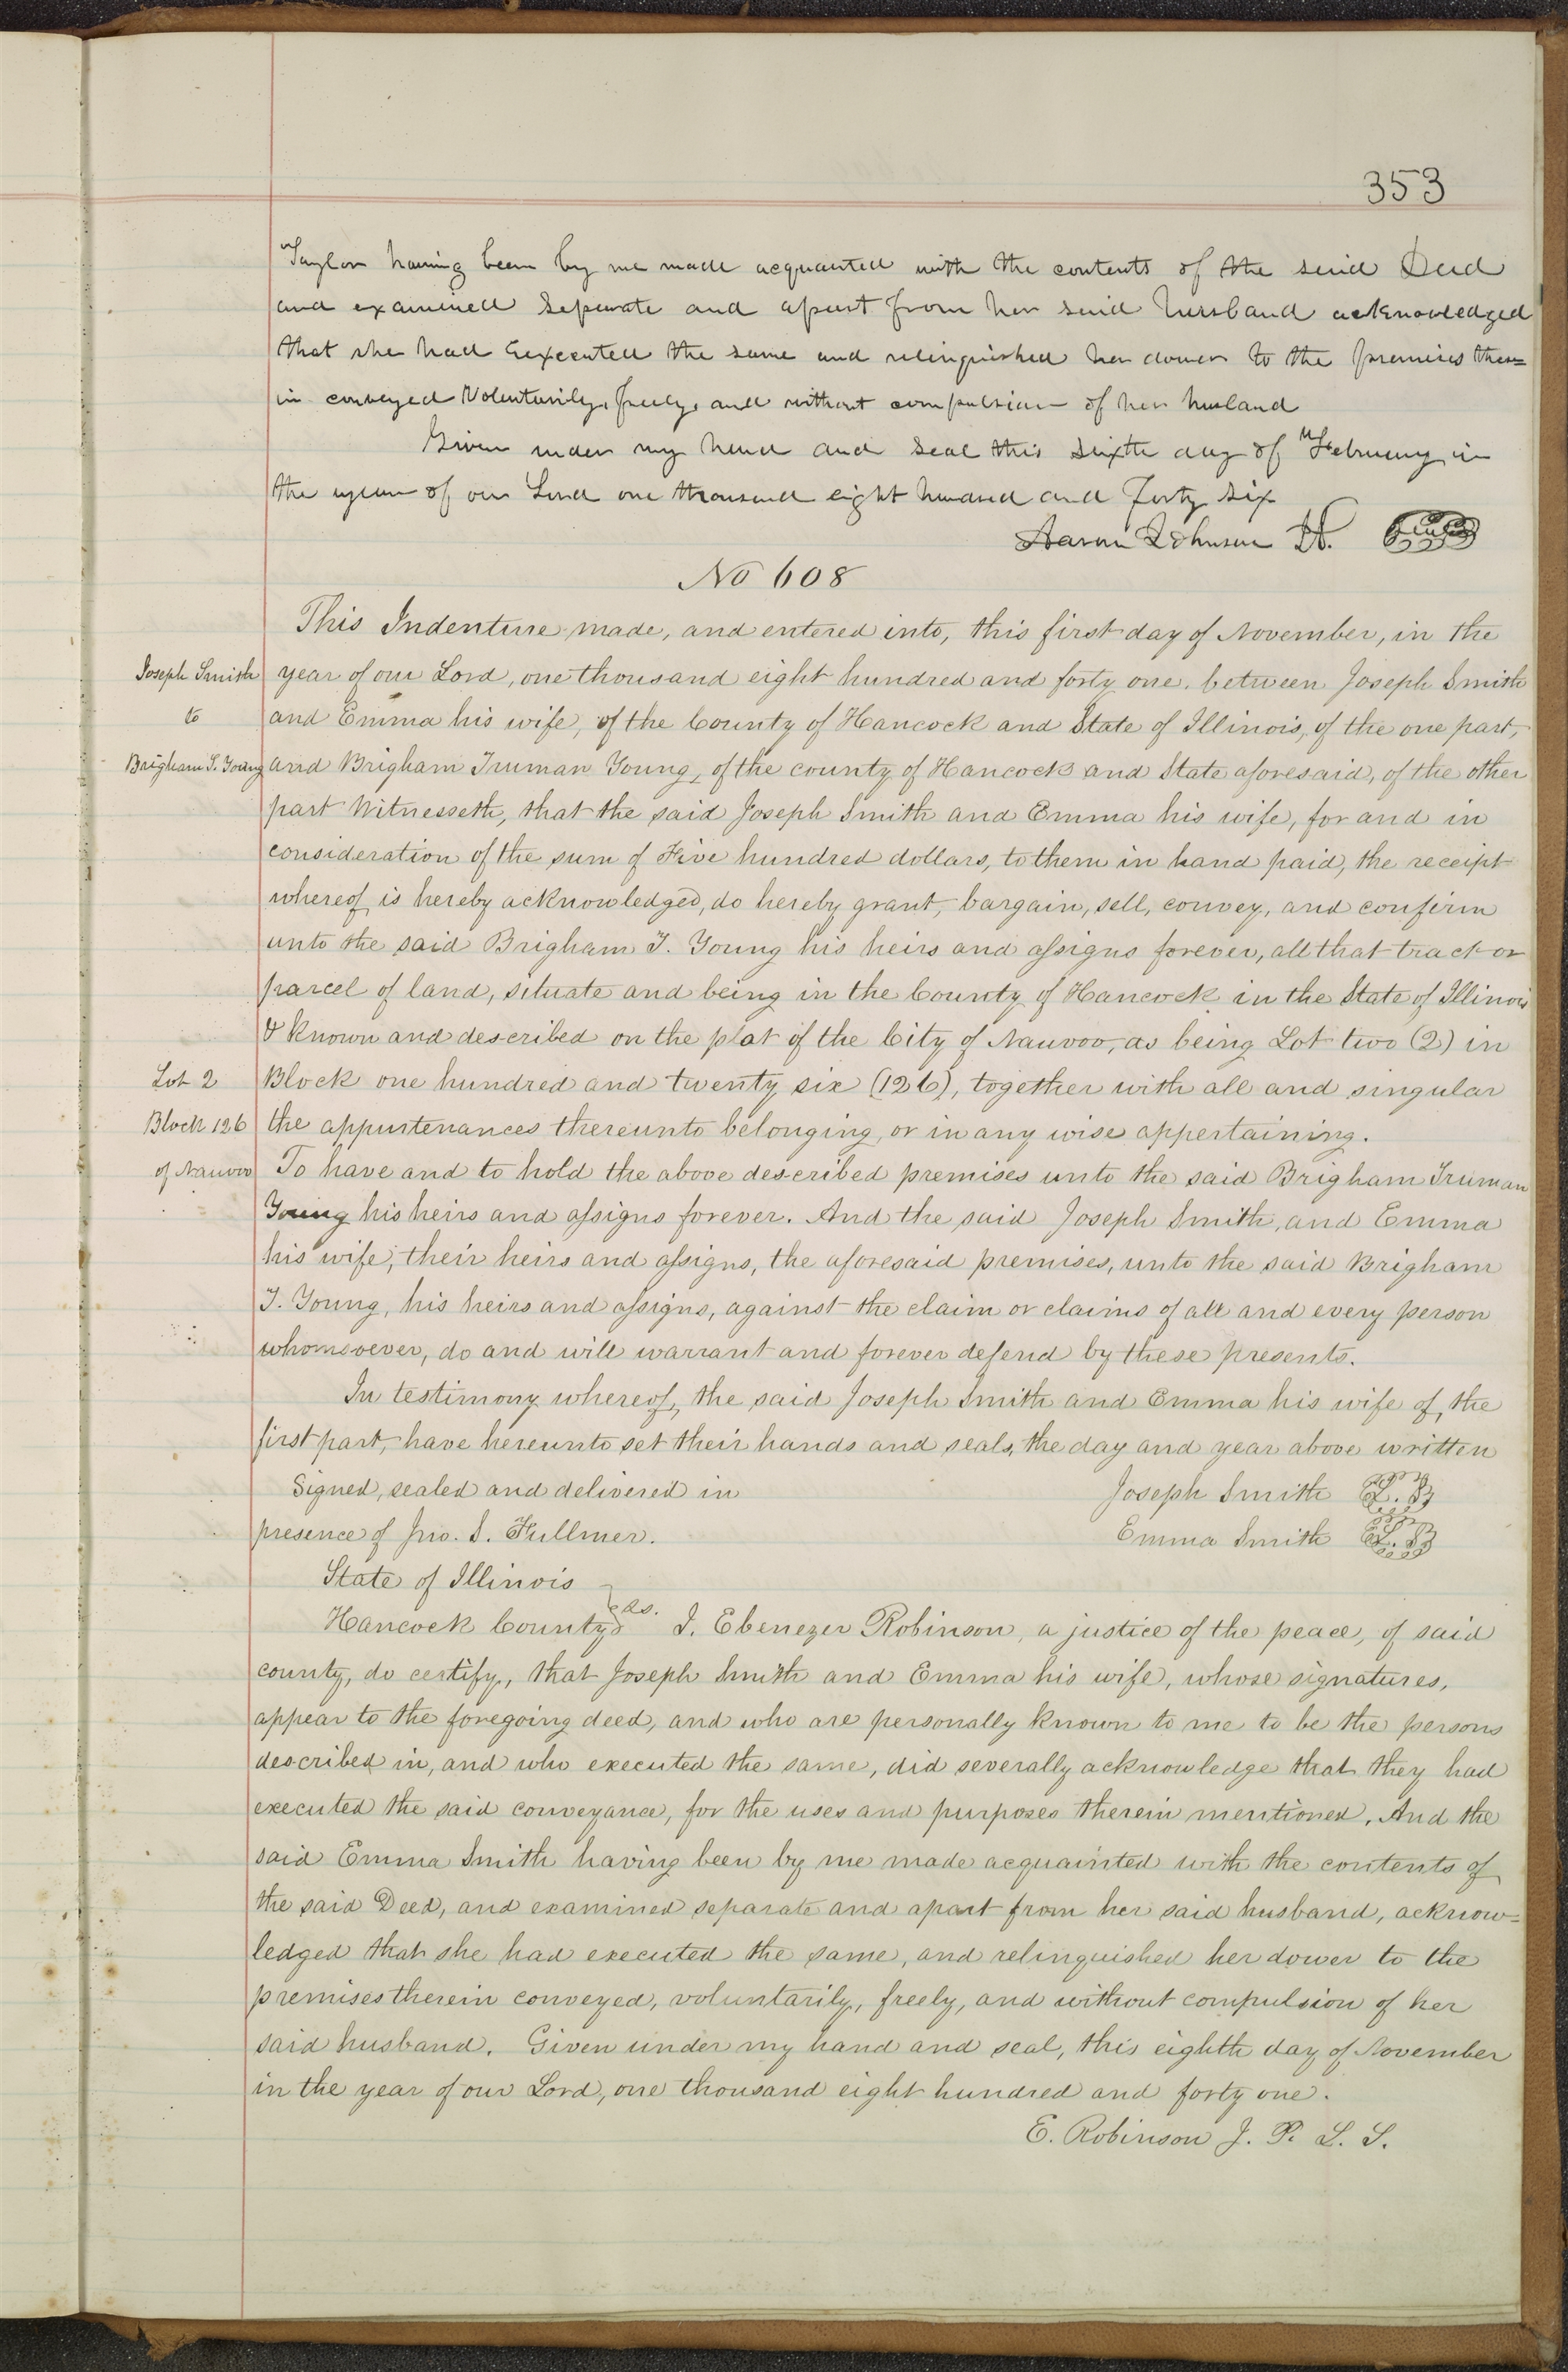 353
Taylor having been by me made acquanted with the contents of the said Deed
and examined Separate and apart from her said husband acknowledged
that she had Eexecuted the same and relinquished her dower to the premises there=
in conveyed Voluntarily, freely, and without compulsion of her husland
Given under my hand and Seal this sixth day of February in
the year of our Lord one thousand eight hundred and forty six
Aaron Johnson
No 608
This Indenture made, and entered into, this first day of November, in the
Joseph Smith year of our Lord, one thousand eight hundred and forty one. between Joseph Smith
to and Emma his wife, of the County of Hancock and State of Illinois, of the one part,
Brigham T. Young and Brigham Truman Young, of the county of Hancock and State aforesaid, of the other
part Witnesseth, that the said Joseph Smith and Emma his wife, for and in
consideration of the sum of Five hundred dollars, to them in hand paid, the receipt
whereof is hereby acknowledged, do hereby grant, bargain, sell, convey, and confirm
unto the said Brigham T. Young his heirs and assigns forever, all that tract or
parcel of land, situate and being in the County of Hancock in the State of Illinois
& known and described on the plat of the City of Nauvoo, as being Lot two (2) in
Lot 2 Block one hundred and twenty six (126), together with all and singular
Block 126 the appurtenances thereunto belonging, or in any wise appertaining.
of Nauvoo To have and to hold the above described premises unto the said Brigham Truman
Young his heirs and assigns forever. And the said Joseph Smith, and Emma
his wife, their heirs and assigns, the aforesaid premises, unto the said Brigham
T. Young, his heirs and assigns, against the claim or claims of all and every person
whomsoever, do and will warrant and forever defend by these presents.
In testimony whereof, the said Joseph Smith and Emma his wife of, the
first part, have hereunto set their hands and seals, the day and year above written
Signed, sealed and delivered in Joseph Smith L. S.
presence of Jno. S. Fullmer. Emma Smith L. S.
State of Illinois
Hancock County } ss. I. Ebenezer Robinson, a justice of the peace, of said
county, do certify, that Joseph Smith and Emma his wife, whose signatures,
appear to the foregoing deed, and who are personally known to me to be the persons
described in, and who executed the same, did severally acknowledge that they had
executed the said conveyance, for the uses and purposes therein mentioned. And the
said Emma Smith having been by me made acquainted with the contents of
the said Deed, and examined separate and apart from her said husband, acknow=
ledged that she had executed the same, and relinquished her dower to the
premises therein conveyed, voluntarily, freely, and without compulsion of her
said husband. Given under my hand and seal, this eighth day of November
in the year of our Lord, one thousand eight hundred and forty one.
E. Robinson J. P. L. S.